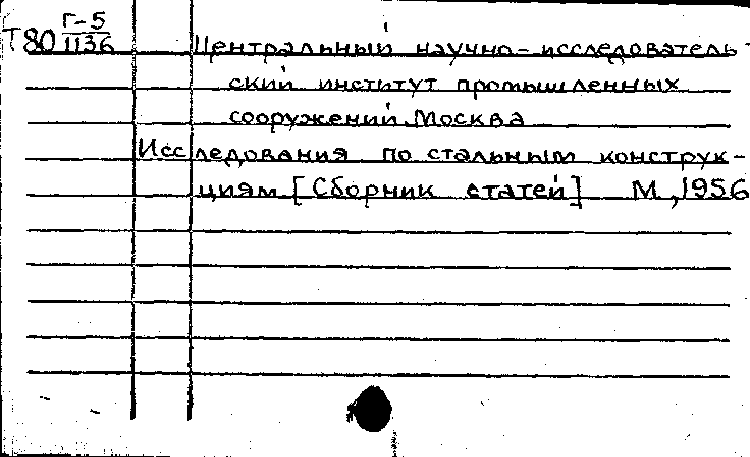 Г-5
Т80 1136 Центральный научно-исследователь-
ский институт промышленных
сооружений. Москва
Исследования по стальным конструк-
циям [Сборник статей] М, 1956